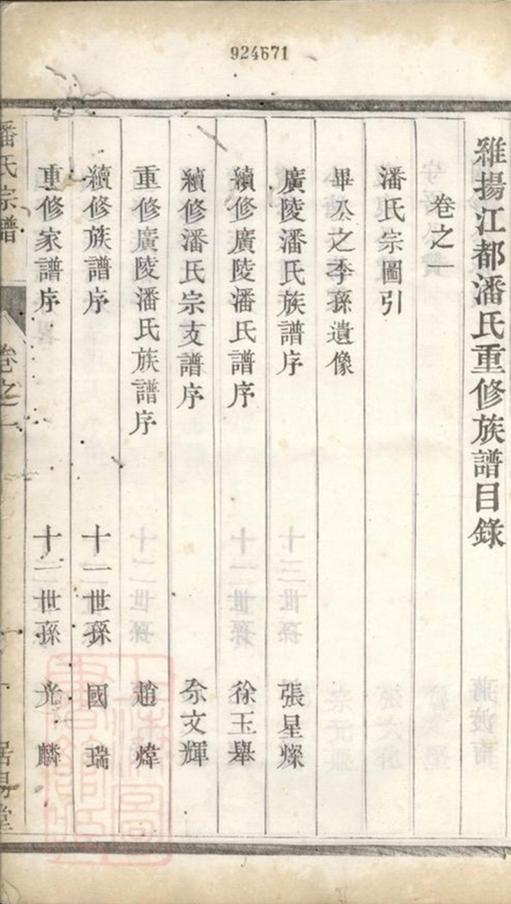 924671
維揚江都潘氏重修族譜目錄
卷之一
潘氏宗圖引
畢公之季孫遺像
廣陵潘氏族譜序 張星燦
續修廣陵潘氏譜序 徐玉舉
續修潘氏宗支譜序 佘文輝
重修廣陵潘氏族譜序 趙煒
續修族譜序 十一世孫 國瑞
重修家譜序 十二世孫 光麟
潘氏宗譜 卷之一 居易堂